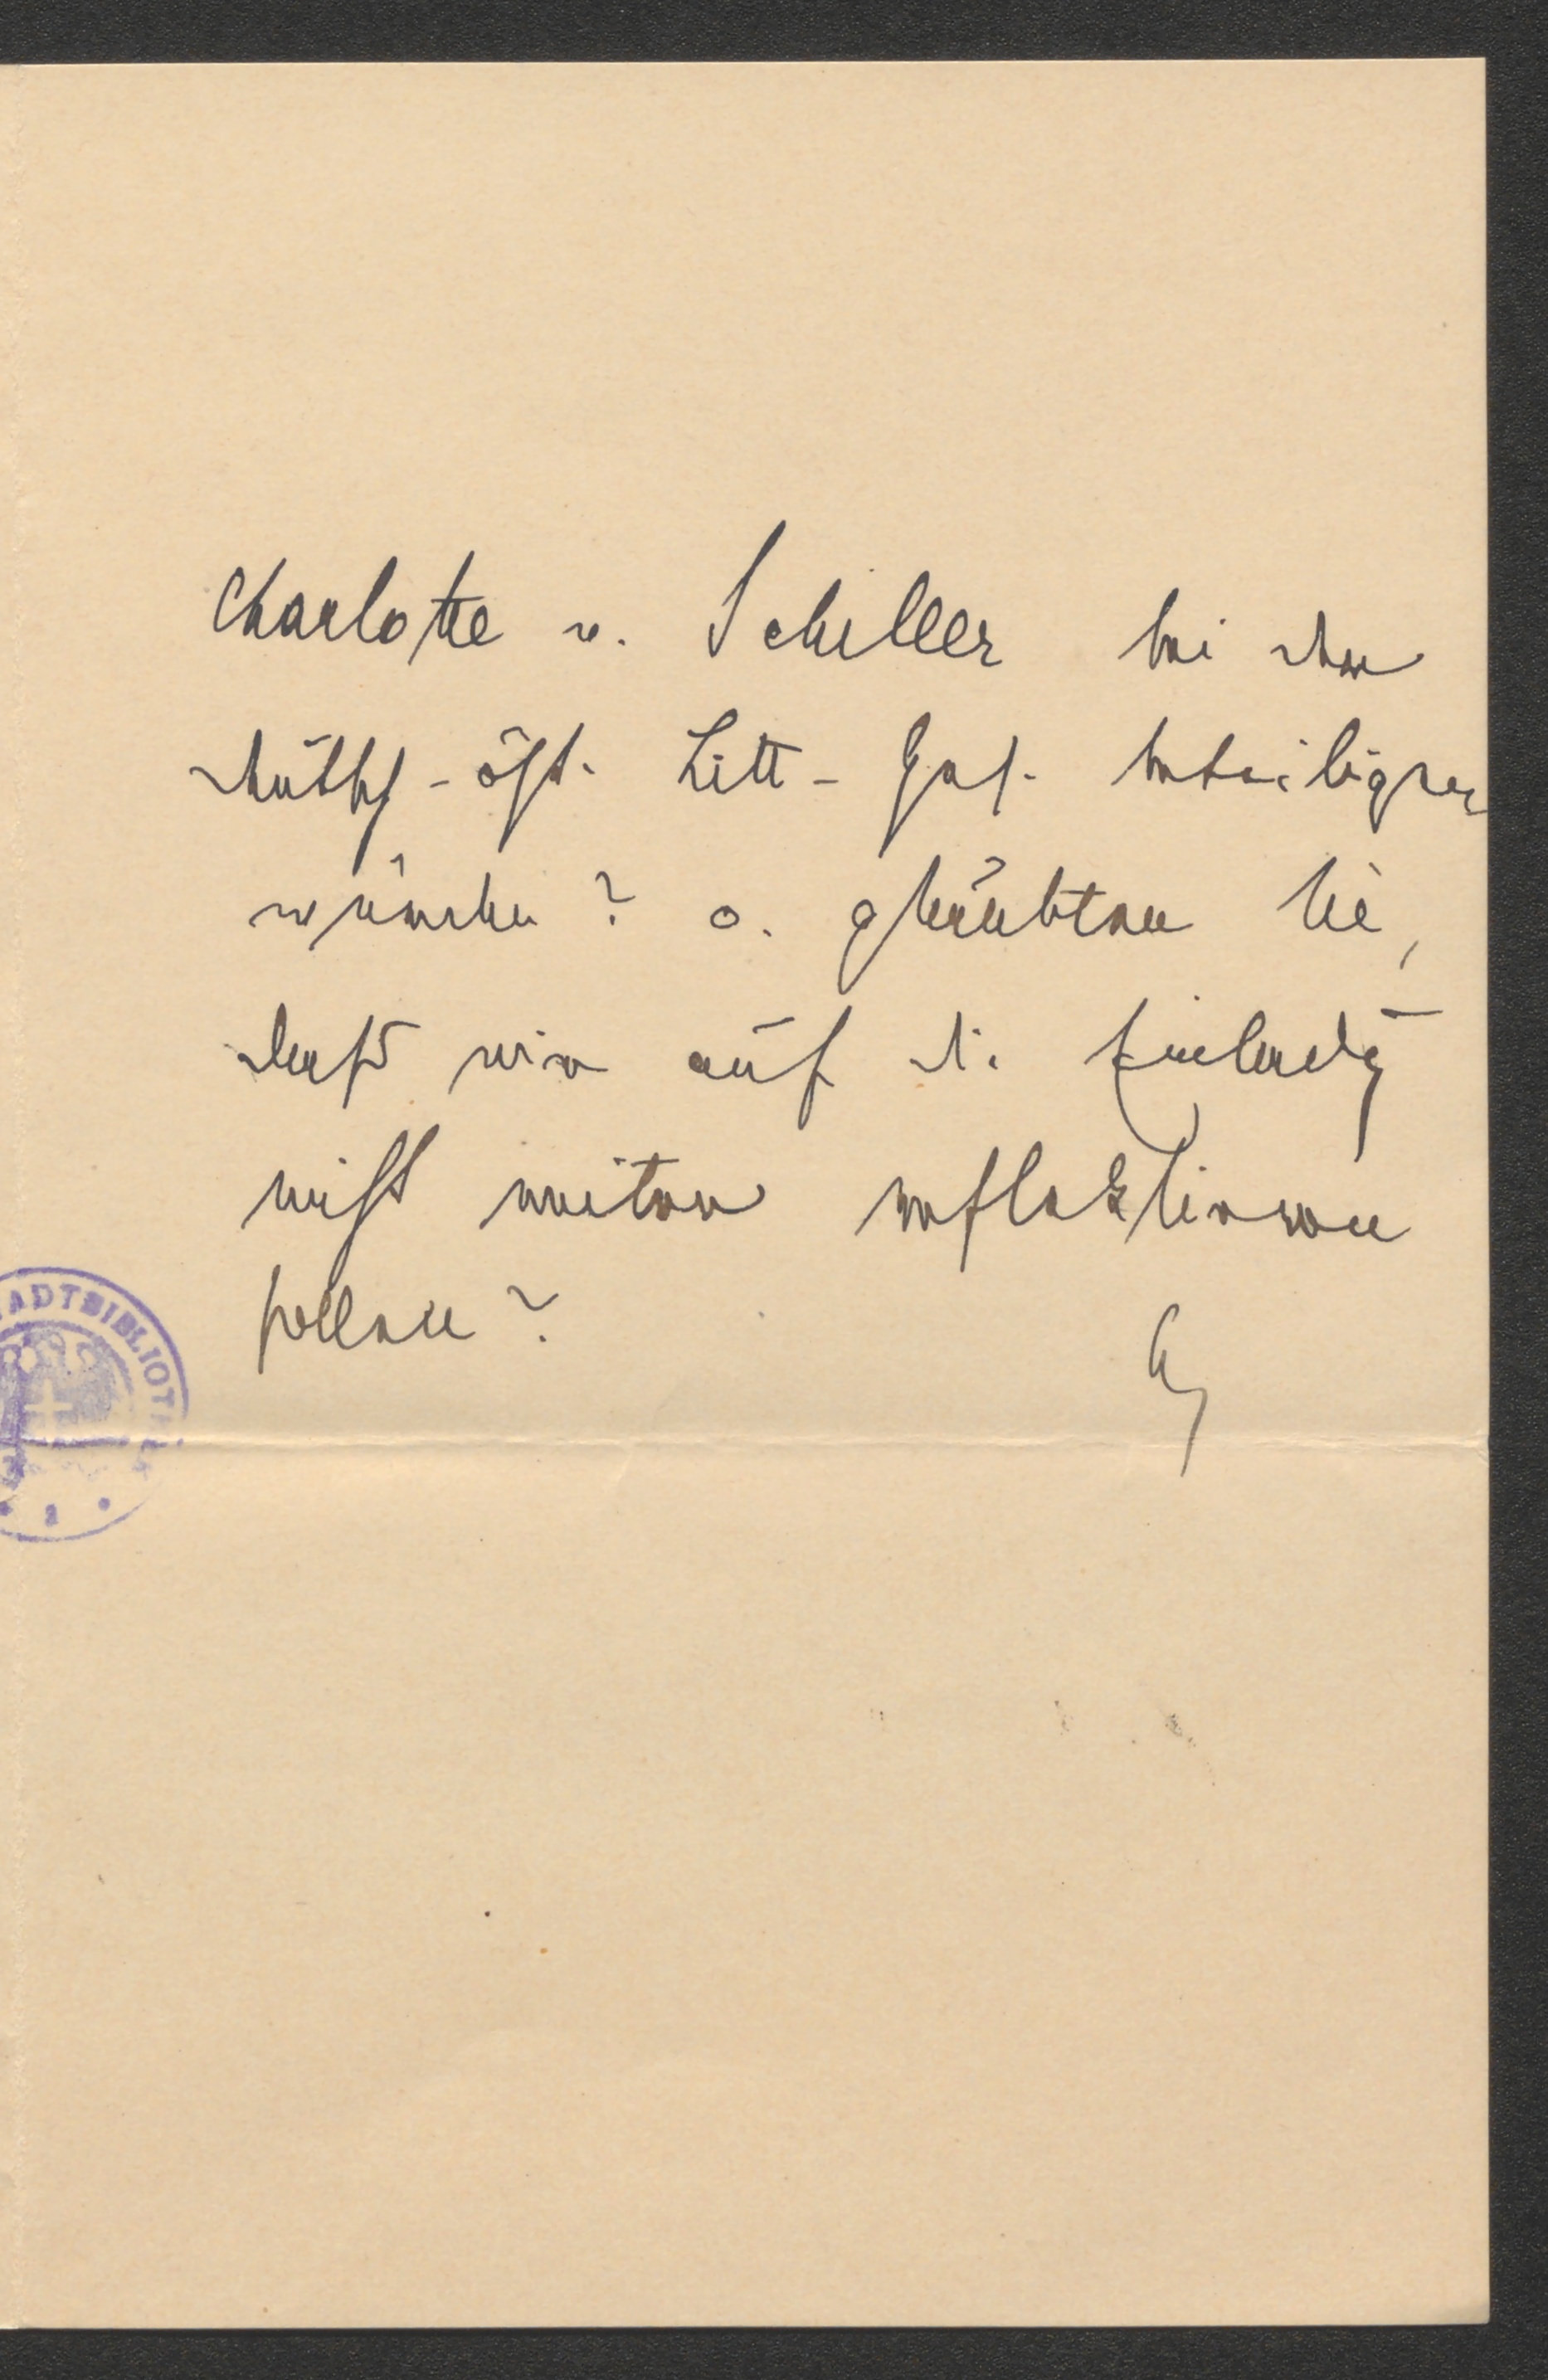 Charlotte v. Schiller bei der
deutsch-öst. Litt-Ges. beteiligen
würden? o. glaubten Sie,
daß wir auf die Einladg
nicht weiter reflektieren
sollen?
STADTBIBLIOT